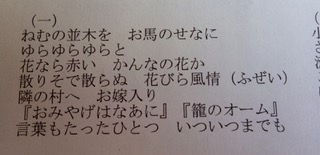 （一）
ねむの並木を　お馬のせなに
ゆらゆらゆらと
花なら赤い　かんなの花か
散りそで散らぬ　花びら風情（ふぜい）
隣の村へ　お嫁入り
『おみやげはなあに』『籠のオーム』
言葉もたったひとつ　いついつまでも